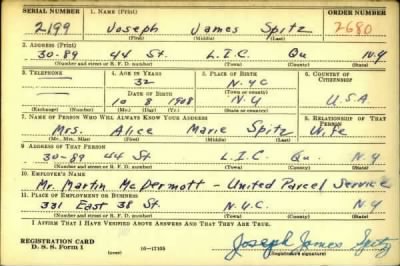 SERIAL NUMBER 1. NAME (Print) ORDER NUMBER
2199 Joseph James Spitz 2680
(First) (Middle) (Last)
2. ADDRESS (Print)
30-89 44 St. L.I.C. Qu N.Y
(Number and street or R. F. D. number) (Town) (County) (State)
3. TELEPHONE 4. AGE IN YEARS 5. PLACE OF BIRTH 6. COUNTRY OF CITIZENSHIP
32 N.Y.C
DATE OF BIRTH (Town or county)
10 8 1908 N.Y U.S.A.
(Exchange) (Number) (Mo.) (Day) (Yr.) (State or country)
7. NAME OF PERSON WHO WILL ALWAYS KNOW YOUR ADDRESS 8. RELATIONSHIP OF THAT PERSON
Mrs. Alice Marie Spitz Wife
(Mr., Mrs., Miss) (First) (Middle) (Last)
9. ADDRESS OF THAT PERSON
30-89 44 St. L.I.C. Qu. N.Y
(Number and street or R. F. D. number) (Town) (County) (State)
10. EMPLOYER'S NAME
Mr. Martin McDermott - United Parcel Service
11. PLACE OF EMPLOYMENT OR BUSINESS
331 East 38 St. N.Y.C. N.Y
(Number and street or R. F. D. number) (Town) (County) (State)
I AFFIRM THAT I HAVE VERIFIED ABOVE ANSWERS AND THAT THEY ARE TRUE.
REGISTRATION CARD
D. S. S. Form 1 (over) 16-17105 Joseph James Spitz
(Registrant's signature)